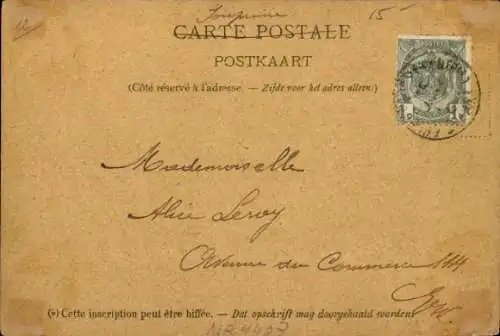 Imprimé
15
CARTE POSTALE
POSTKAART
(Côté réservé à l'adresse. — Zijde voor het adres alleen.)
Mademoiselle
Alice Leroy
Avenue du Commerce 114
E/V.
(*) Cette inscription peut être biffée. — Dat opschrift mag doorgehaald worden.